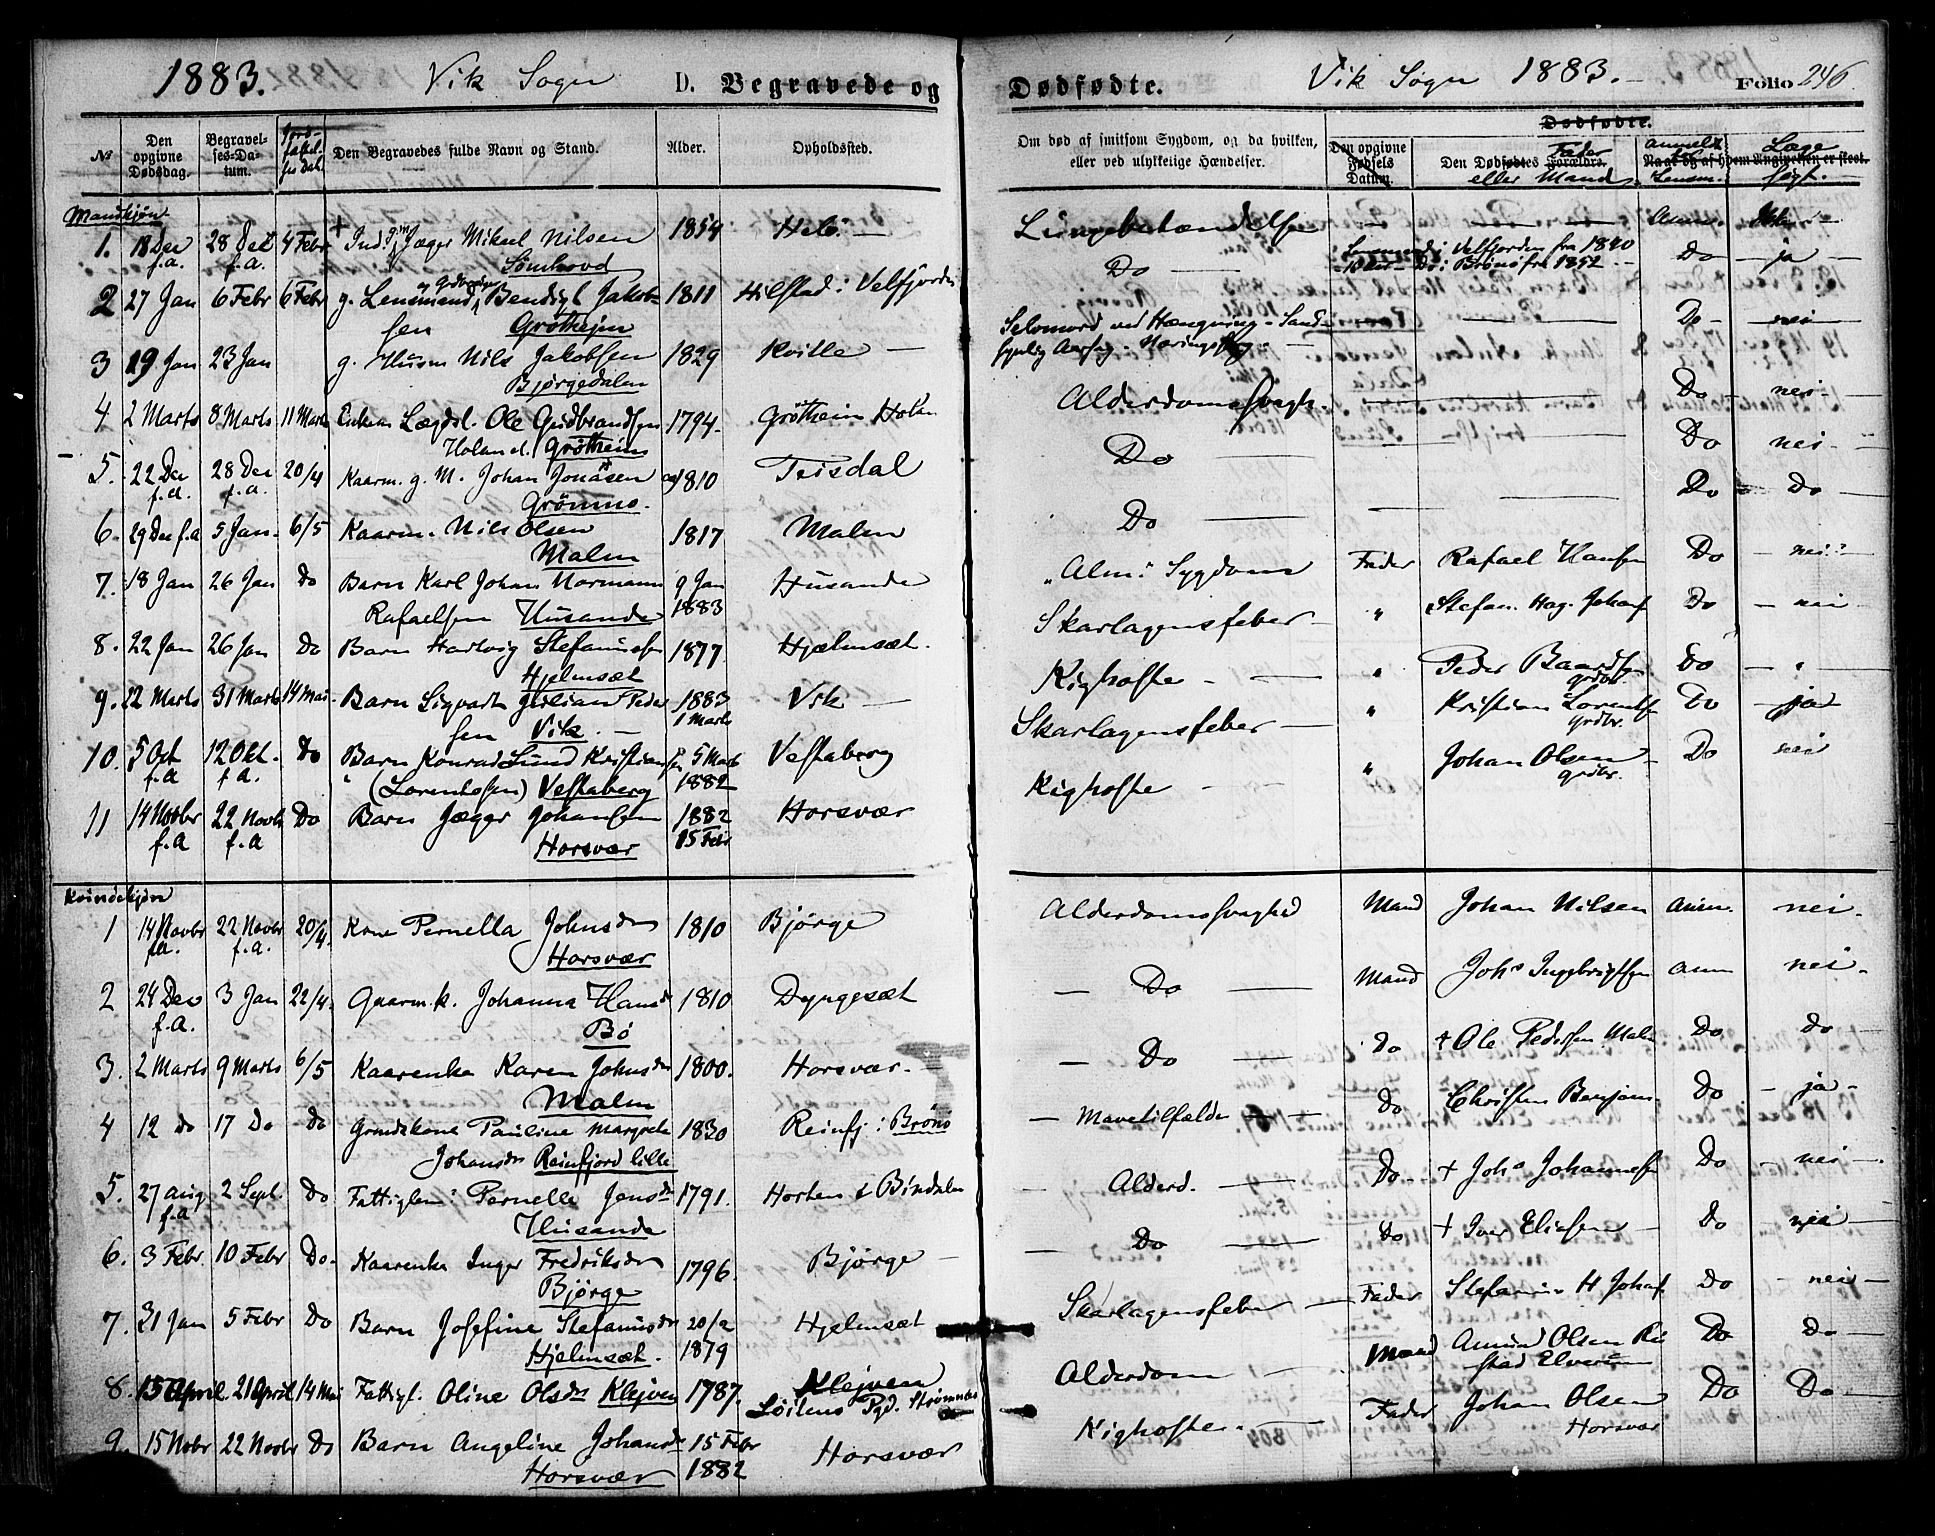 1883. Vik Sogn D. Begravede og Dødfødte. Vik Sogn 1883. Folio 246
№ Den opgivne Dødsdag. Begravelses-Datum. Den Begravedes fulde Navn og Stand. Alder. Opholdssted.
Om død af smitsom Sygdom, og da hvilken, eller ved ulykkelige Hændelser. Dødfødte. Den opgivne Fødsels Datum. Den Dødfødtes Forældre. Fader eller Mand. anmeldt Lensm. Læge søgt.
Mandkjøn
1. 18 Dec f.a. 28 Dec f.a. 4 Febr Jæger Mikael Nilsen 1854 Hels Anm.
Sømhovd
2 27 Jan 6 Febr 6 Febr g. Lensmand Bendigt Jakob- 1811 Hilstad i Velfjorden Do Lensmand i Velfjorden fra 1840 Do i Brønø fra 1852 Do ja
sen Grøtheim
3 19 Jan 23 Jan g. Husm Nils Jakobsen 1829 Kville Selvmord ved Hængning - Sand- Do nei
Bjørgedalen synlig Aarsag. Næringssorg
4 2 Marts 8 Marts 11 Marts Enkem Lægdsl. Ole Gudbrandsen 1794 Grøtheim Holm Alderdomssvagh. Do nei
Holand. Grøtheim
5. 22 Dec f.a. 28 Dec f.a. 20/4 Kaarm. g. M. Johan Jonasen 1810 Teisdal Do Do nei
Grønmo.
6. 29 Dec f.a 5 Jan. 6/5 Kaarm. Nils Olsen 1817 Malm Do Do Do
Malm
7. 18 Jan 26 Jan Do Barn Karl Johan Normann 9 Jan Husande "Alm." Sygdom Fader Rafael Hansen Do nei
Rafaelsen Husande 1883
8. 22 Jan 26 Jan Do Barn Hartvig Stefanusen 1877 Hjelmsæt. Skarlagensfeber " Stefan. Hag. Johans Do nei
Hjelmsæt
9. 12 Marts 31 Marts 14 Mai Barn Sigvart Julian Peder 1883 Vik Kighoste " Peder Baardsen Do "
sen Vik 1 Marts grdbr.
10. 5 Oct f.a 12 Okt. f.a. Do Barn Konrad Lund Kristiansen 5 Marts Vestaberg Skarlagensfeber " Kristian Lorentsen Do ja
(Lorentsen) Vestaberg 1882 Grdbr.
11 14 Novbr f.a 22 Novbr f.a Do Barn Jæger Johansen 1882 Horsvær Kighoste " Johan Olsen Do nei
Horsvær 15 Febr grdbr.
Kvindekjøn
1 14 Novbr f.a. 22 Novbr f.a. 20/4. Kone Pernella Johnsdr 1810 Bjørge Alderdomssvaghed Mand Johan Nilsen anm. nei
Horsvær
2 24 Dec f.a. 3 Jan 22/4. Gaarm.k. Johanna Hansdr 1810 Dyngesæt Do Mand Johs Ingebrigtsen anm nei
Bø
3. 2 Marts 9 Marts 6/5 Kaarenke Karen Johnsdr 1800. Horsvær Do Do + Ole Pedersen Malm Do do
Malm
4 12 Do 17 Do Do Grundskone Pauline Margrete 1830 Reinfj i Brønø Mavetilfælde Do Christen Benjam Do ja
Johansdr Reinfjord lille
5. 27 Aug f.a 2 Sept. Do Fattiglem Pernelle Jensdr 1791. Horten i Bindalen Alderd. Do + Johs Johannesen Do nei
Husande
6. 3 Febr. 10 Febr Do. Kaarenke Inger Fredriksdr 1796. Bjørge Do Do + Iver Eliasen Do nei
Bjørge
7. 31 Jan 5 Febr Do Barn Josefine Stefanusdr 20/2 Hjelmsæt Skarlagensfeber Fader Stefanus H Johans Do nei
Hjelmsæt. 1879
8. 15 April 21 April 14 Mai Fattigl. Oline Olsdr Klejven 1787. Klejven Alderdom Mand Amund Olsen Ru Do Do
Løitens Pgd. Strømnes stad Elverum
9. 15 Nobr 22 Novbr Do Barn Angeline Johansdr 15 Febr Horsvær Kighoste. Fader Johan Olsen Do Do
Horsvær 1882 Horsvær